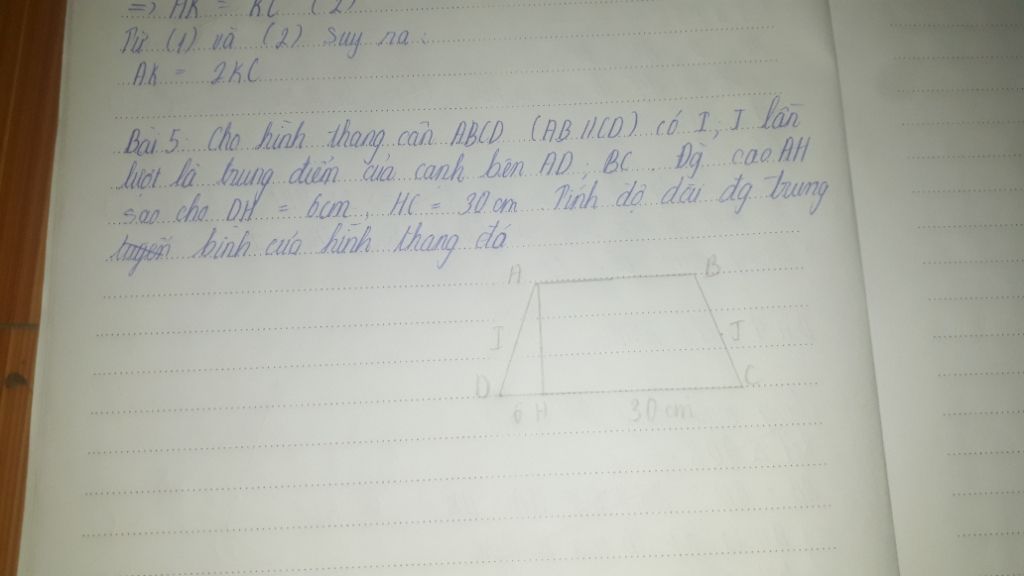 => AK = KC (2)
Từ (1) và (2) suy ra:
AK = 2KC
Bài 5: Cho hình thang cân ABCD (AB//CD) có I, J lần
lượt là trung điểm của cạnh bên AD, BC. Đg cao AH
sao cho DH = 6cm, HC = 30 cm Tính độ dài đg trung
bình của hình thang đó
A B
I J
D C
6 H 30 cm